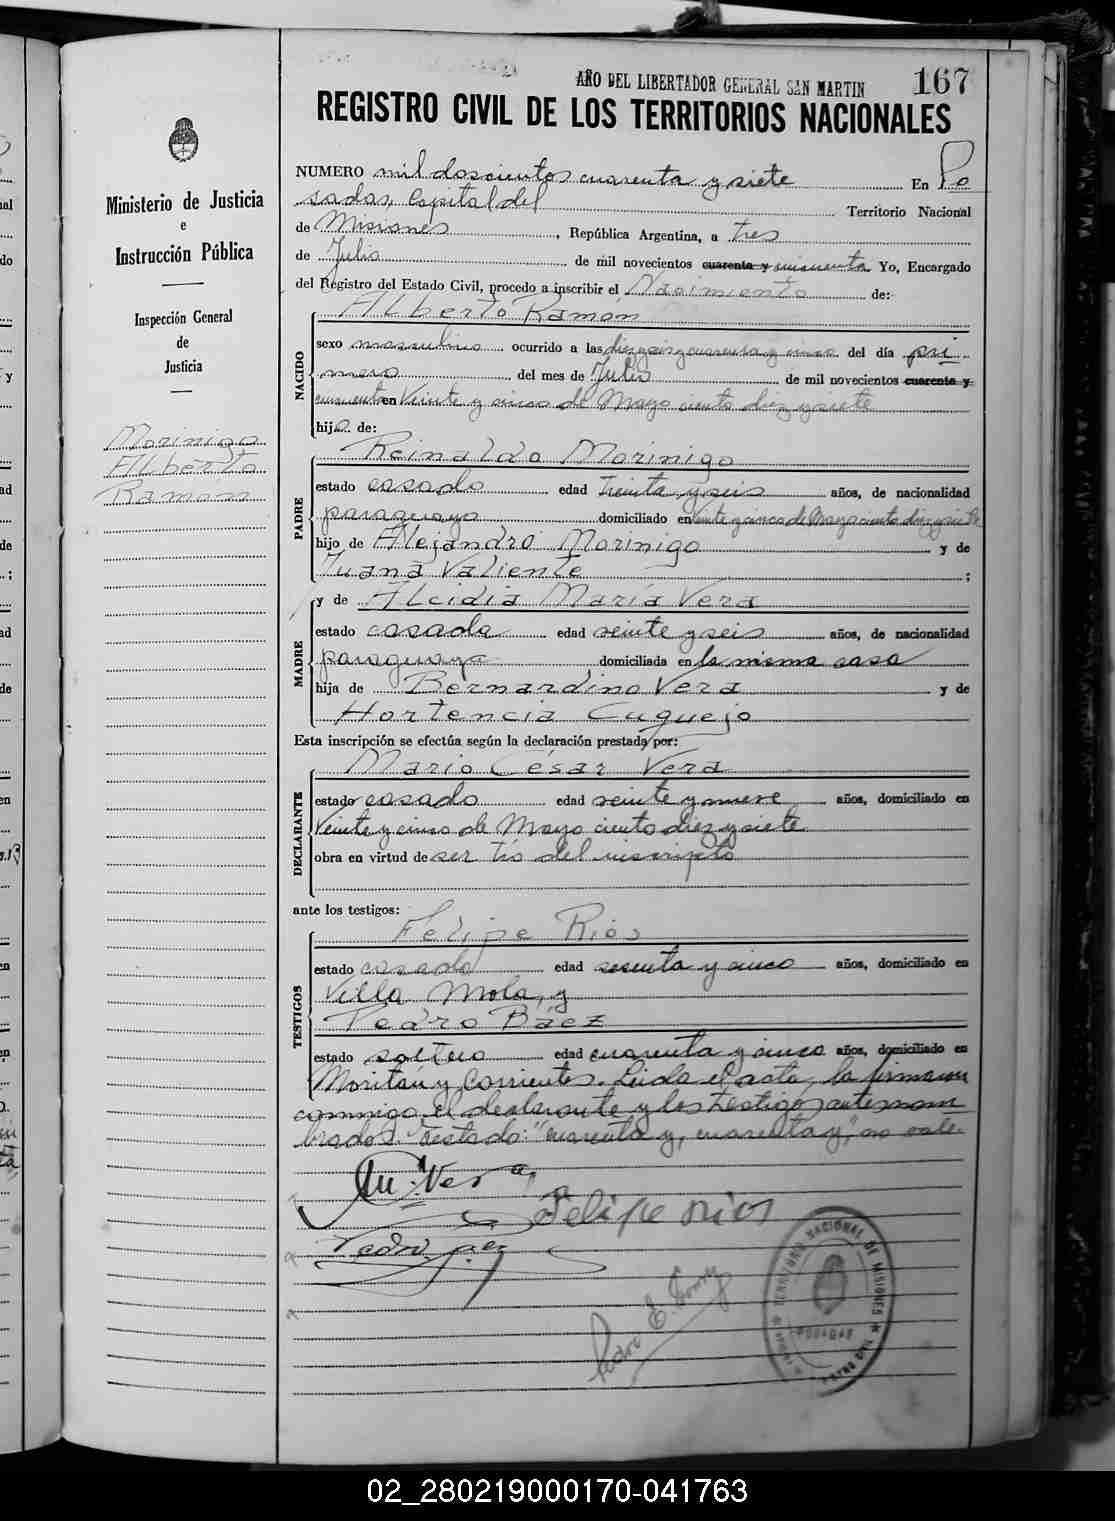 AÑO DEL LIBERTADOR GENERAL SAN MARTIN
167
REGISTRO CIVIL DE LOS TERRITORIOS NACIONALES
Ministerio de Justicia
e
Instrucción Pública
Inspección General
de
Justicia
Morinigo
Alberto
Ramón
NUMERO mil doscientos cuarenta y siete En Po
sadas, Capital del Territorio Nacional
de Misiones, República Argentina, a tres
de Julio de mil novecientos cuarenta y cincuenta Yo, Encargado
del Registro del Estado Civil, procedo a inscribir el Nacimiento de:
NACIDO
Alberto Ramon
sexo masculino ocurrido a las diez y seis y cuarenta y cinco del día pri
mero del mes de Julio de mil novecientos cuarenta y
cincuenta en Veinte y cinco de Mayo ciento diez y siete
hijo de:
PADRE
Reinaldo Morinigo
estado casado edad treinta y seis años, de nacionalidad
paraguaya domiciliado en Veinte y cinco de Mayo ciento diez y siete
hijo de Alejandro Morinigo y de
Juana Valiente ;
MADRE
y de Alcidia María Vera
estado casada edad veinte y seis años, de nacionalidad
paraguaya domiciliada en la misma casa
hija de Bernardino Vera y de
Hortencia Cuguejo
Esta inscripción se efectúa según la declaración prestada por:
DECLARANTE
Mario César Vera
estado casado edad veinte y nueve años, domiciliado en
Veinte y cinco de Mayo ciento diez y siete
obra en virtud de ser tío del inscripto
ante los testigos:
TESTIGOS
Felipe Rios
estado casado edad sesenta y cinco años, domiciliado en
Villa Mola, y
Pedro Báez
estado soltero edad cuarenta y cinco años, domiciliado en
Moritán y Corrientes. Leida el acta, la firmaron
conmigo el declarante y los testigos antenom
brados. Testado: "cuarenta y, cuarenta y", no vale.
M. Vera
Felipe Rios
Pedro Baez
Pedro E.
TERRITORIO NACIONAL DE MISIONES
POSADAS
02_280219000170-041763